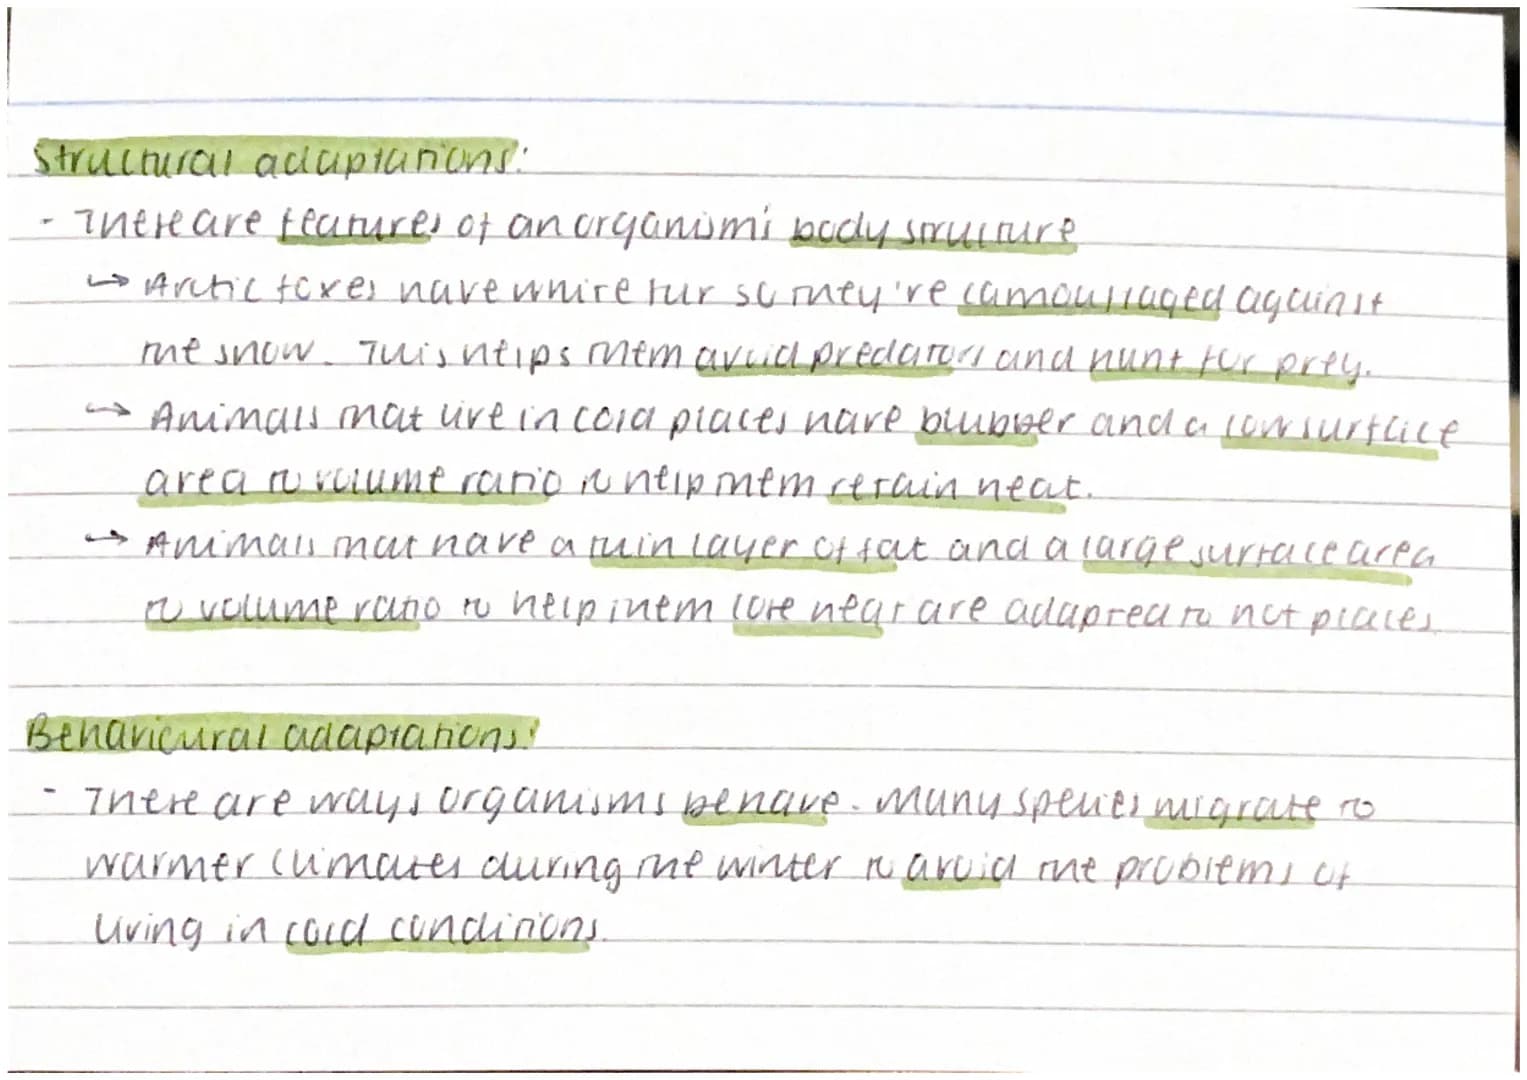 Structural adaptations:
- These are features of an organism's body structure
→ Arctic foxes have white fur so they're camouflaged against
the snow. This helps them avoid predators and hunt for prey.
→ Animals that live in cold places have blubber and a low surface
area to volume ratio to help them retain heat.
→ Animals that have a thin layer of fat and a large surface area
to volume ratio to help them lose heat are adapted to hot places
Behavioural adaptations:
- These are ways organisms behave. Many species migrate to
warmer climates during the winter to avoid the problems of
living in cold conditions.